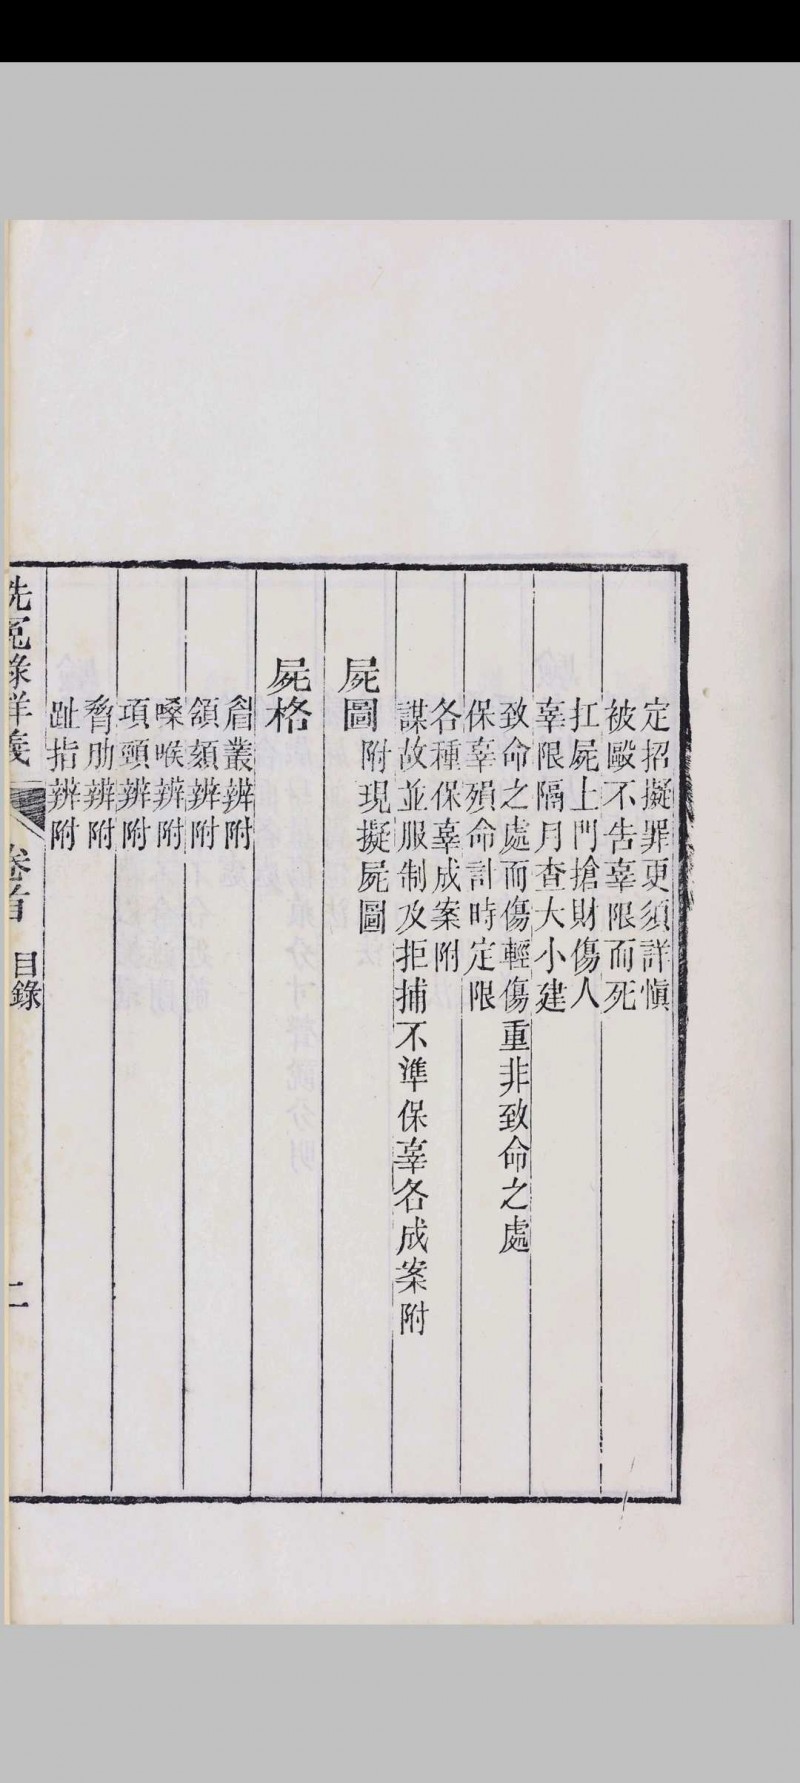 定招擬罪更須詳慎
被毆不告辜限而死
扛屍上門搶財傷人
辜限隔月查大小建
致命之處而傷輕傷重非致命之處
保辜殞命計時定限
各種保辜成案附
謀故並服制及拒捕不準保辜各成案附
屍圖 附現擬屍圖
屍格
叢辨附
頷頦辨附
嗓喉辨附
項頸辨附
脅肋辨附
趾指辨附
洗冤錄詳義 卷首 目錄 二